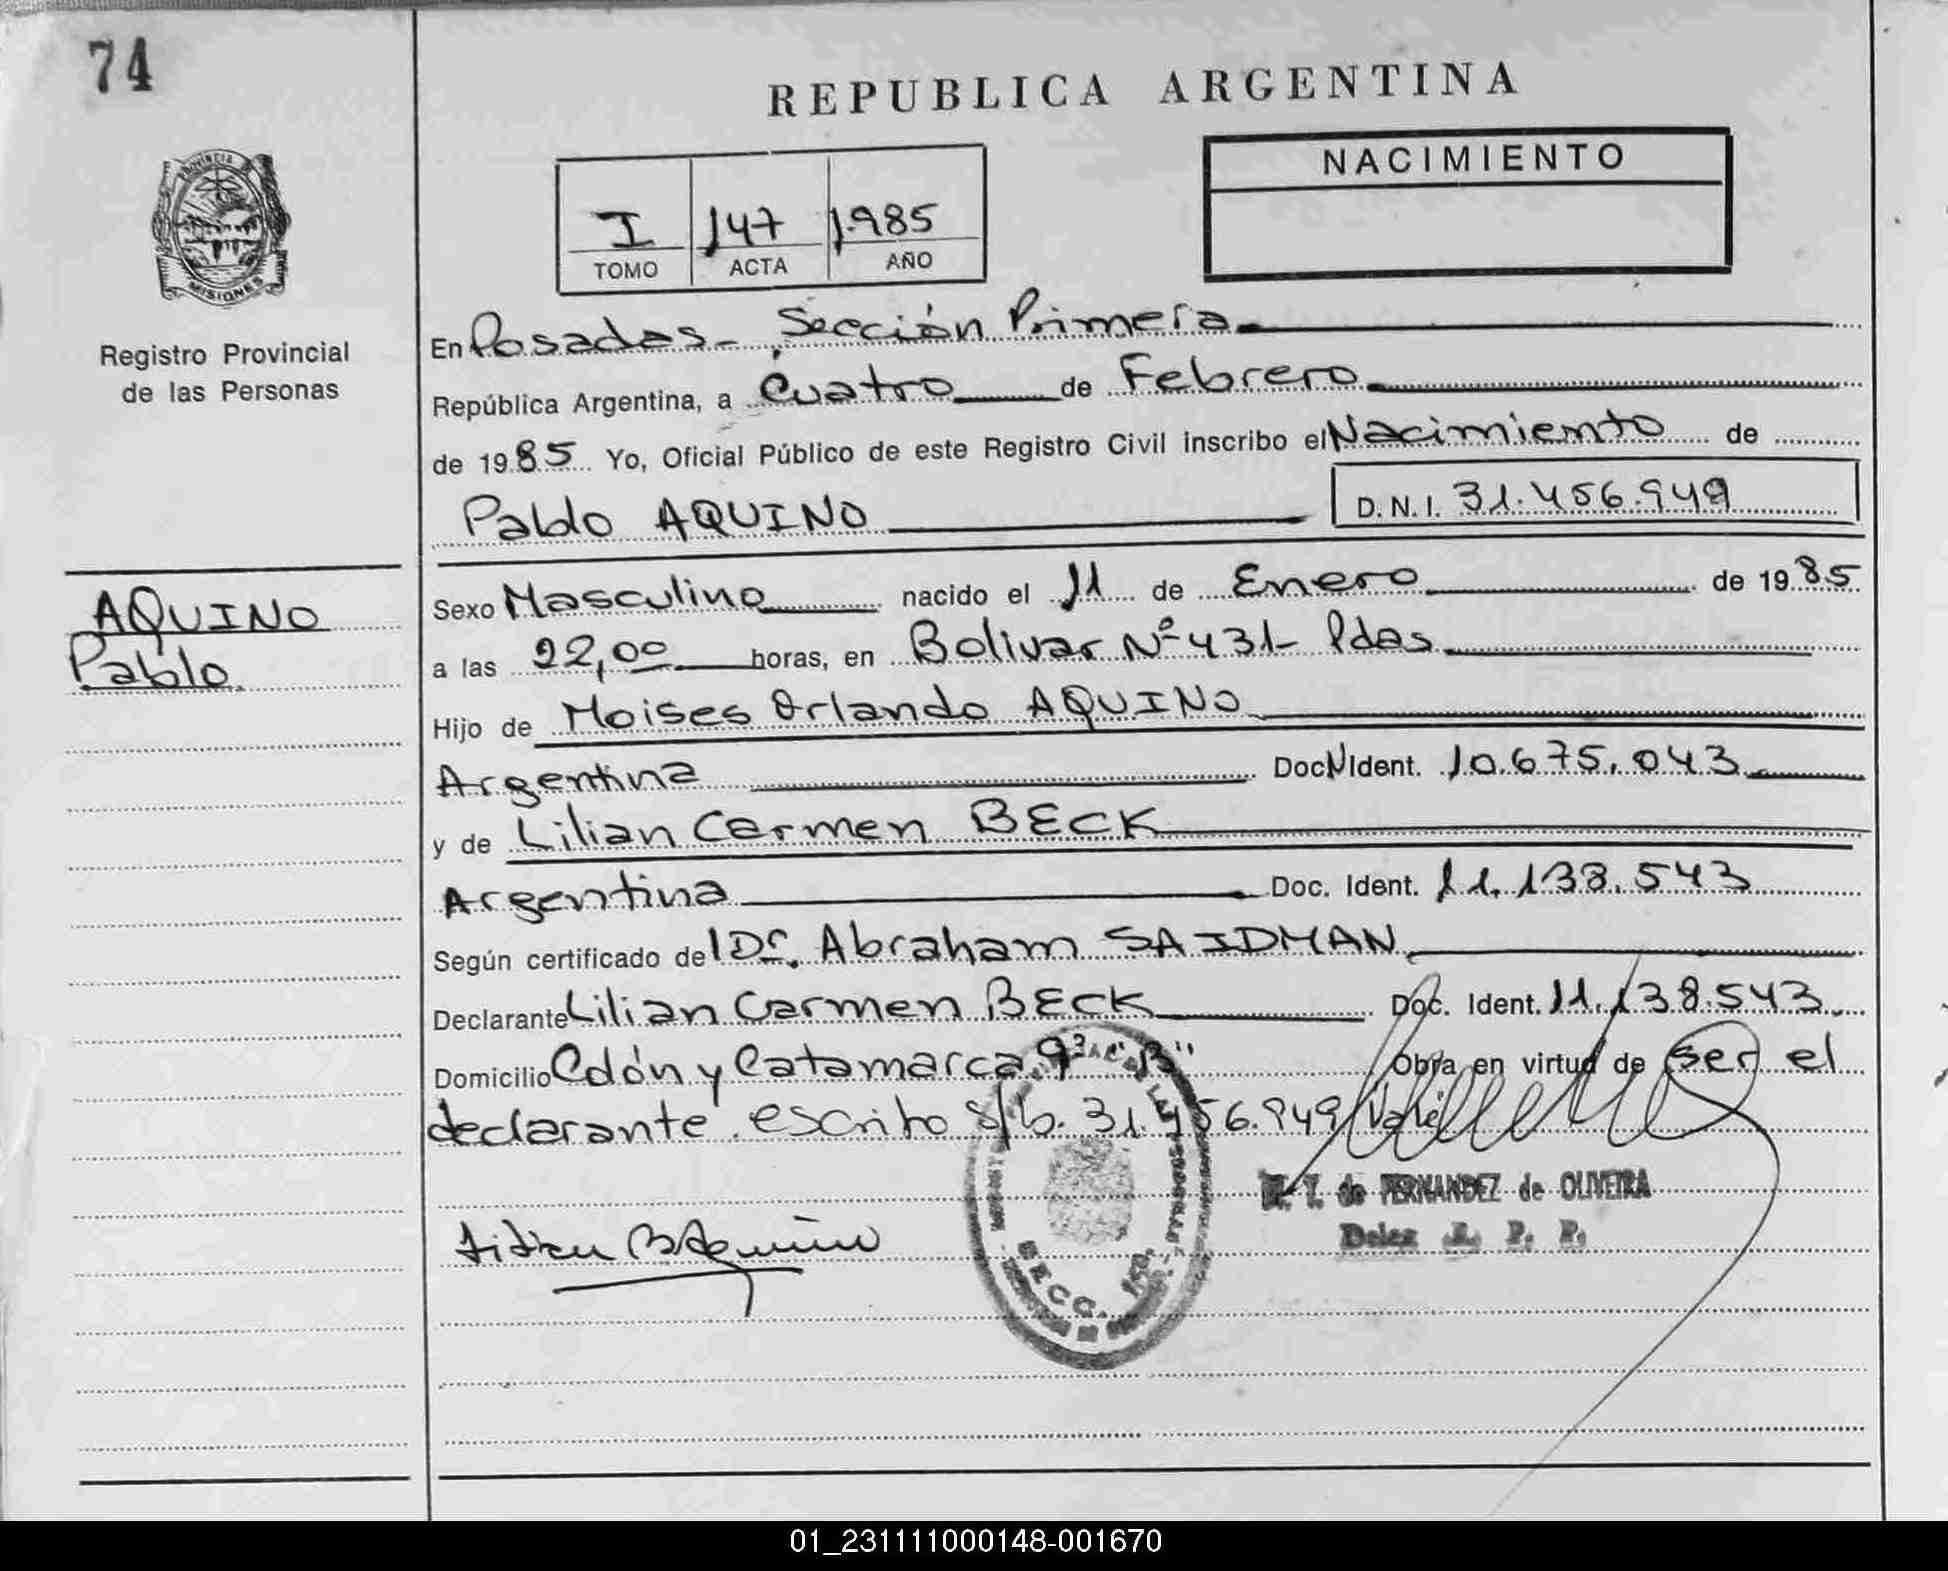 74
REPUBLICA ARGENTINA
PROVINCIA
MISIONES
Registro Provincial
de las Personas
I 147 1.985
TOMO ACTA AÑO
NACIMIENTO
En Posadas - Sección Primera
República Argentina, a Cuatro de Febrero
de 1985 Yo, Oficial Público de este Registro Civil inscribo el Nacimiento de
Pablo AQUINO D.N.I. 31.456.949
AQUINO
Pablo.
Sexo Masculino nacido el 11 de Enero de 1985
a las 22,00 horas, en Bolivar Nº 431- Pdas
Hijo de Moises Orlando AQUINO
Argentina Doc N Ident. 10.675.043
y de Lilian Carmen BECK
Argentina Doc. Ident. 11.138.543
Según certificado del Dr. Abraham SAIDMAN
Declarante Lilian Carmen BECK Doc. Ident. 11.138.543
Domicilio Colón y Catamarca 9º "B" Obra en virtud de ser el
declarante. escrito s/b. 31.456.949 Vale
M. T. de FERNANDEZ de OLIVEIRA
R. P. P.
SECC. 1ra.
01_231111000148-001670